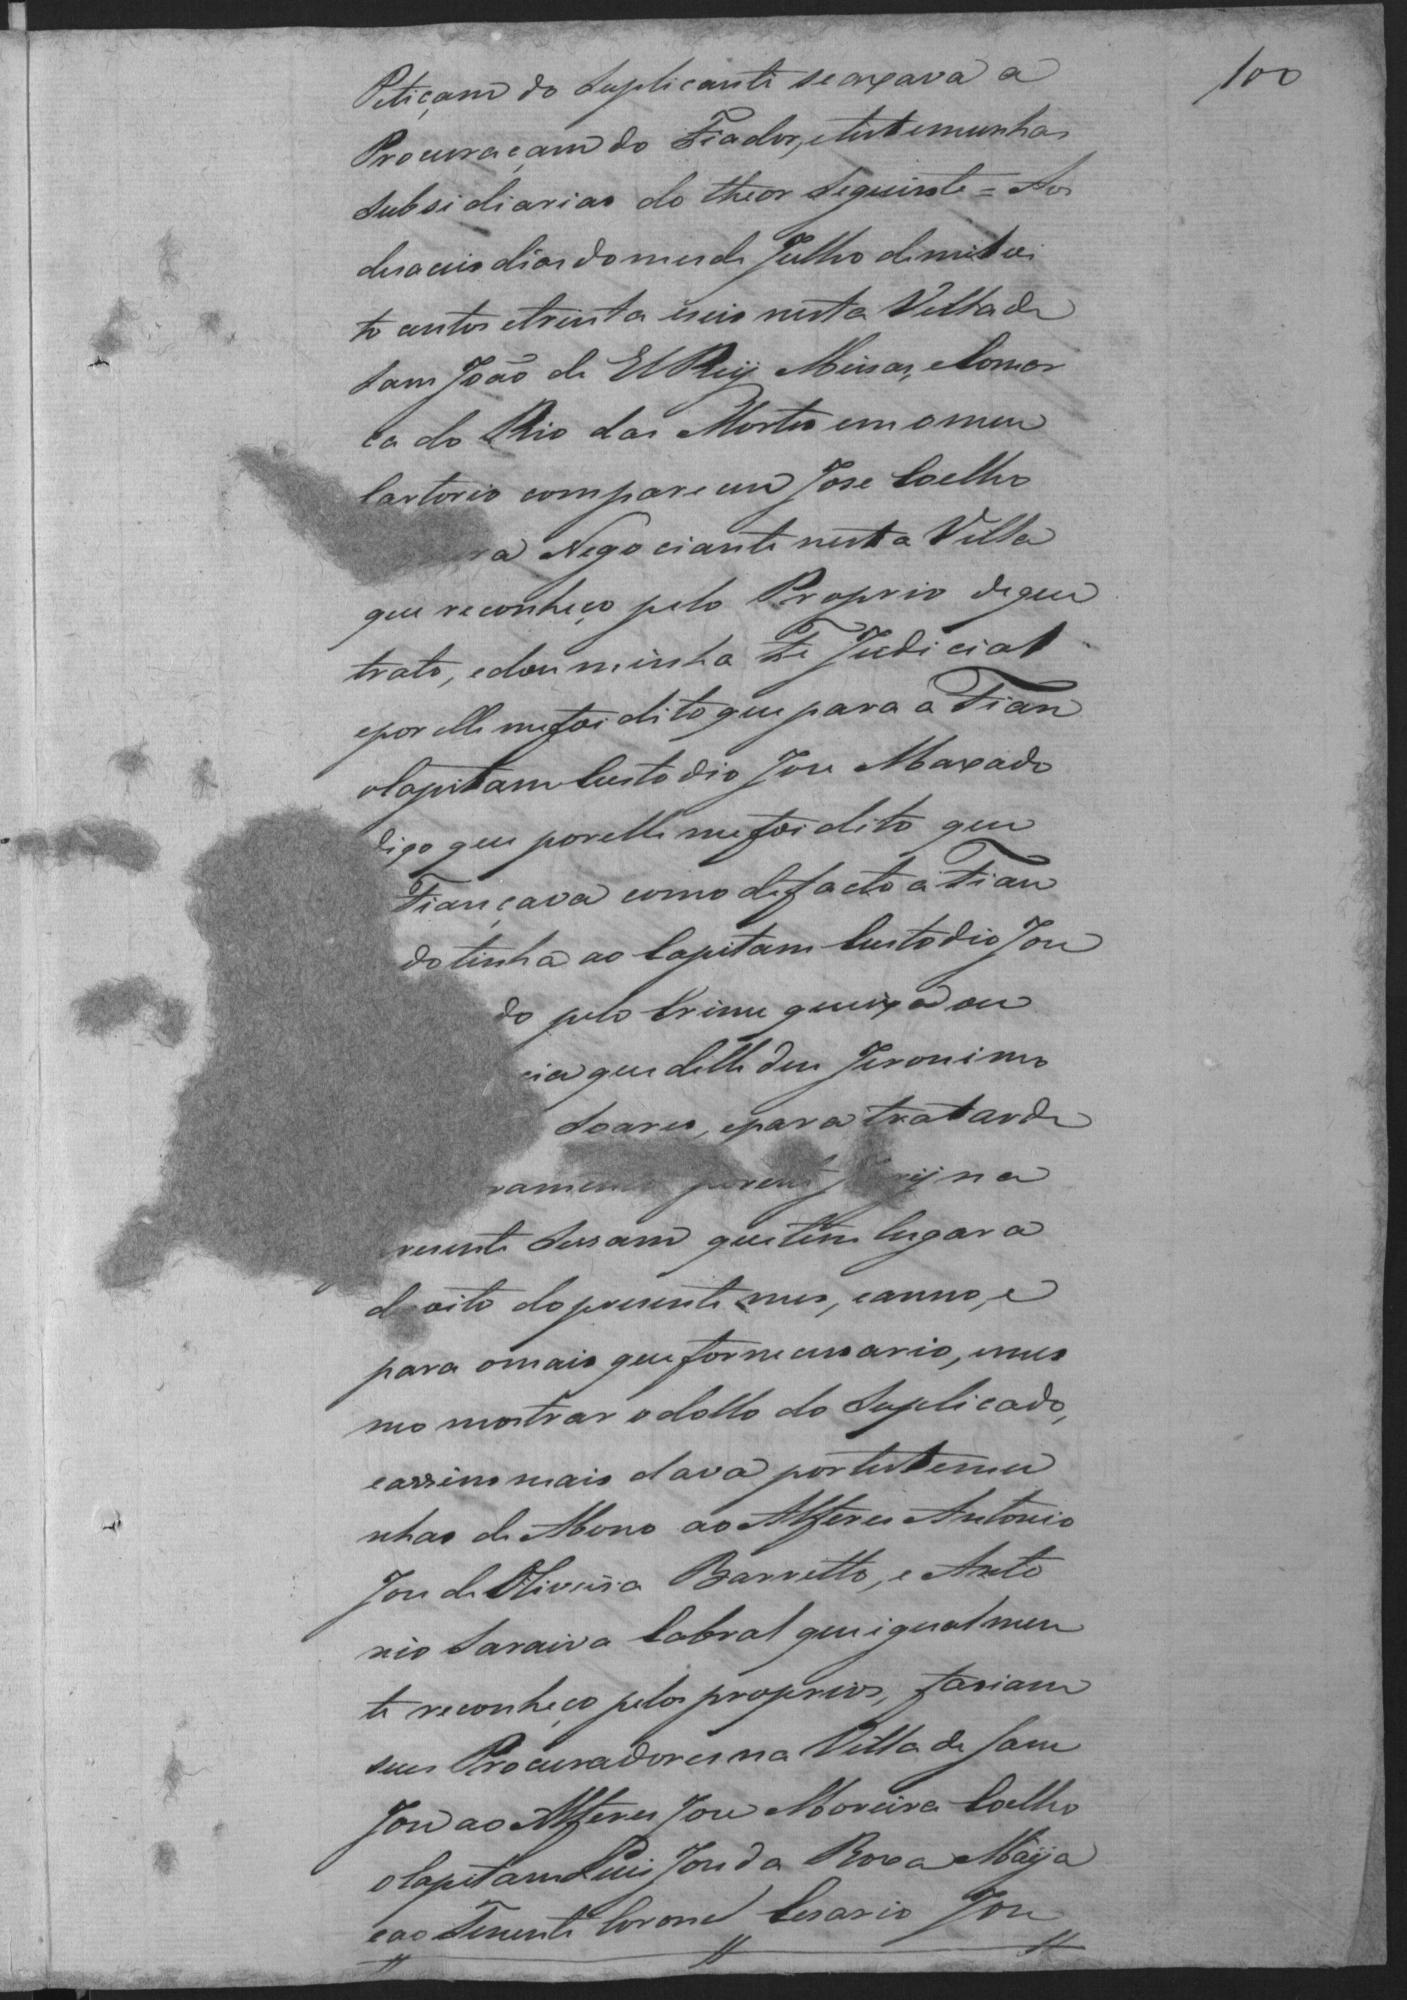 100
Petiçam do Suplicante se axava a
Procuraçam do Fiador, etestemunhas
subsidiarias do theor seguinte = Aos
desaceis dias do mes de Julho de mil oi
to centos etrinta eseis nesta Villa de
Sam João de El Reÿ Minas, e Comar
ca do Rio das Mortes em omeu
Cartorio compareceu Jose Coelho
ra Negociante nesta Villa
que reconheço pelo Proprio de que
trato, edou minha Fe Judicial
epor elle me foi dito que para a Fian
oCapitam Custodio Jose Maxado
digo que por elle me foi dito que
Fiançava como de facto a Fian
do tinha ao Capitam Custodio Jose
do pelo Crime queixa ou
cia que delle deu Jeronimo
Soares, epara tratar de
rament perent Jurÿ na
resente Sessam que tem lugar a
desoito do presente mes, eanno, e
para omais que for necessario, emes
mo mostrar o dollo do Suplicado,
eassim mais dava por testemu
nhas de Abono ao Alferes Antonio
Jose de Oliveira Barretto, e Anto
nio Saraiva Cabral que igualmen
te reconheço pelos proprios, fasiam
seus Procuradores na Villa de Sam
Jose ao Alferes Jose Moreira Coelho
o Capitam Luis Jose da Roxa Maÿa
eao Tenente Coronel Cesario Jose